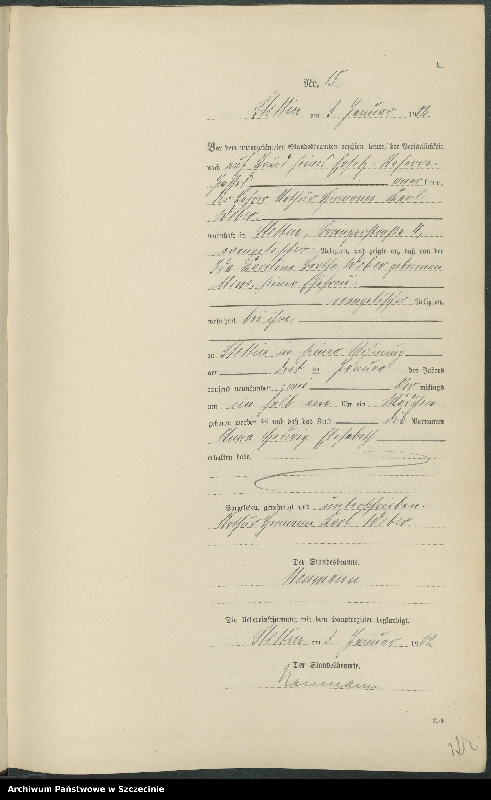 A.
Nr. 15.
Stettin am 3. Januar 1902.
Vor dem unterzeichneten Standesbeamten erschien heute, der Persönlichkeit
nach auf Grund seines Ersatz-Reserve-
kannt,
der Arthur Hermann Carl
Weber
wohnhaft in Stettin, 4,
evangelischer Religion, und zeigte an, daß von der
Ida Bertha Weber geborenen
seiner Ehefrau,
evangelischer Religion,
wohnhaft bei ihm,
zu Stettin in seiner Wohnung
am Januar des Jahres
tausend neunhundert zwei Vor mittags
um ein halb ein Uhr ein Mädchen
geboren worden sei und daß das Kind die Vornamen
Anna Hedwig Elisabeth
erhalten habe.
Vorgelesen, genehmigt und unterschrieben.
Arthur Hermann Carl Weber.
Der Standesbeamte.
Die Uebereinstimmung mit dem Hauptregister beglaubigt.
Stettin am 3. Januar 1902.
Der Standesbeamte.
Archiwum Państwowe w Szczecinie